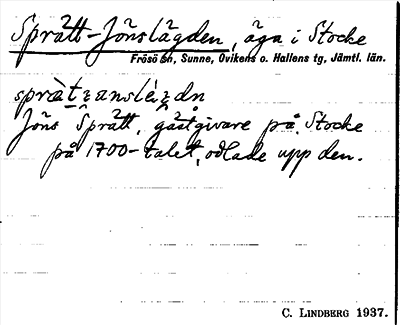 Sprätt-Jönslägden, äga i Stocke
Frösö sn, Sunne, Ovikens o. Hallens tg. Jämtl. län.
Jöns Sprätt, gästgivare på Stocke
på 1700-talet, odlade upp den.
C. LINDBERG 1937.